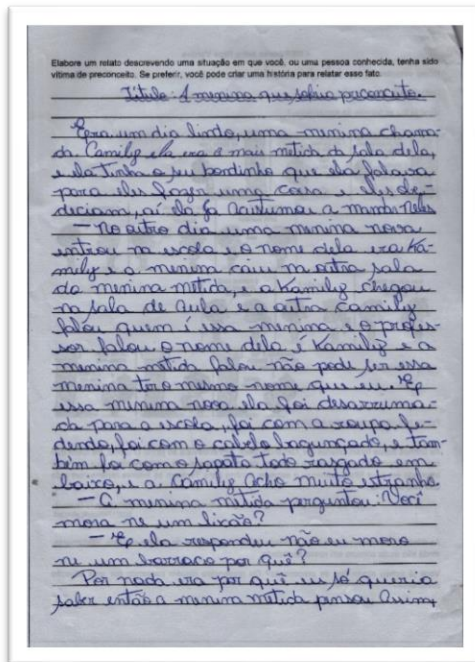 Elabore um relato descrevendo uma situação em que você, ou uma pessoa conhecida, tenha sido
vítima de preconceito. Se preferir, você pode criar uma história para relatar esse fato.
Título: A menina que sofria preconceito.
Era um dia lindo, uma menina chama-
da Camily ela era a mais metida da sala dela,
e ela tinha o seu bondinho que ela falava
para eles fazer uma coisa e eles de-
deciam, aí ela já acustumou a manda neles
— No outro dia uma menina nova
entrou na escola e o nome dela era Ka-
mily e a menina caiu na outra sala
da menina metida, e a Kamily chegou
na sala de aula e a outra Camily
falou quem é essa menina e o profes-
sor falou o nome dela é Kamily e a
menina metida falou não pode ser essa
menina ter o mesmo nome que eu. E
essa menina nova ela foi desarruma-
da para a escola, foi com a roupa fe-
dendo, foi com o cabelo bagunçado, e tam-
bém foi com o sapato todo rasgado em
baixo, e a Camily acho muito estranho.
— A menina metida perguntou: Você
mora ne um lixão?
— E ela respondeu não eu moro
ne um barraco por quê?
Por nada era por quê eu só queria
saber então a menina metida pensou assim,